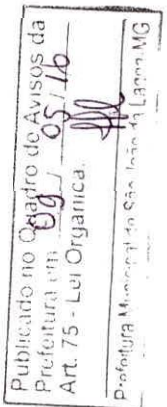 Publicado no Quadro de Avisos da
Prefeitura em 09 / 05 / 16
Art. 75 - Lei Orgânica.
Prefeitura Municipal de São João da Lagoa MG